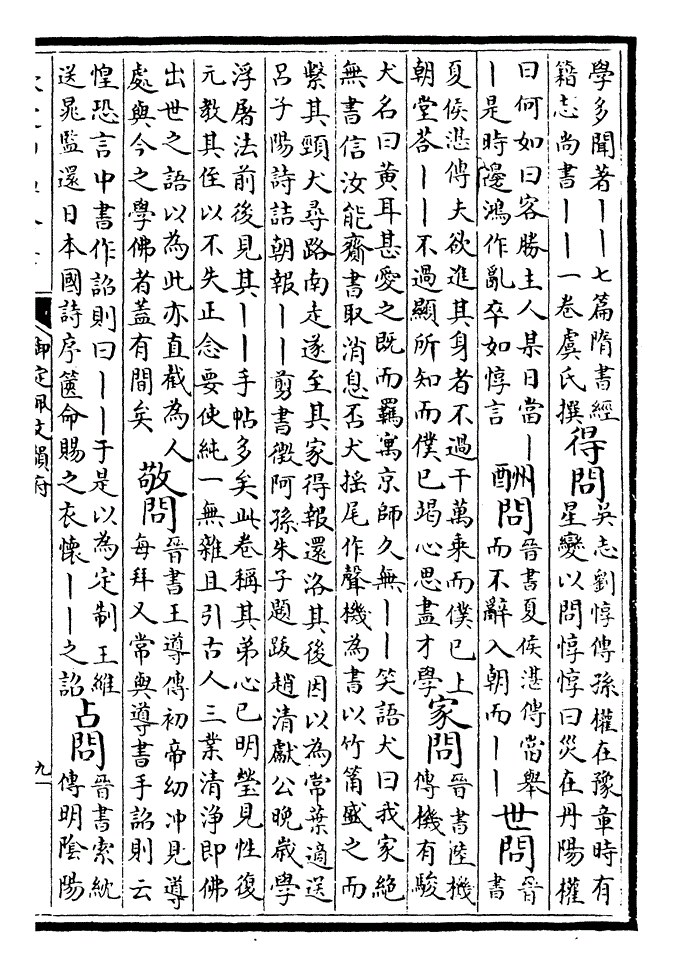 學多聞著——七篇隋書經
籍志尚書——一卷虞氏撰
得問
吳志劉惇傳孫權在豫章時有
星變以問惇惇曰災在丹陽權
曰何如曰客勝主人某日當—
—是時邊鴻作亂卒如惇言
酬問
晉書夏侯湛傳當舉
而不辭入朝而——
世問
晉
書
夏侯湛傳夫欲進其身者不過千萬乘而僕已上
朝堂荅——不過顯所知而僕已竭心思盡才學
家問
晉書陸機
傳機有駿
犬名曰黃耳甚愛之既而羈寓京師久無——笑語犬曰我家絶
無書信汝能齎書取消息否犬摇尾作聲機為書以竹筩盛之而
繫其頸犬尋路南走遂至其家得報還洛其後因以為常葉適送
呂子陽詩詰朝報——剪書徵阿孫朱子題跋趙清獻公晚歲學
浮屠法前後見其——手帖多矣此卷稱其弟心已明瑩見性復
元教其侄以不失正念要使純一無雜且引古人三業清浄即佛
出世之語以為此亦直截為人
處與今之學佛者蓋有間矣
敬問
晉書王導傳初帝幼沖見導
每拜又常與導書手詔則云
惶恐言中書作詔則曰——于是以為定制王維
送晁監還日本國詩序篋命賜之衣懷——之詔
占問
晉書索紞
傳明陰陽
御定佩文韻府
九